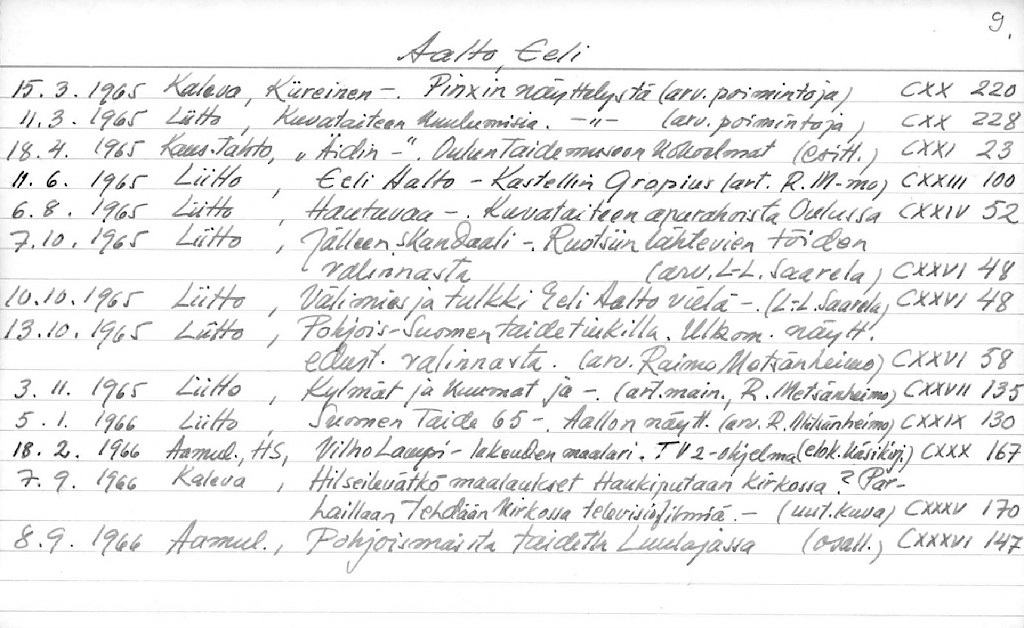 9.
Aalto, Eeli
15. 3. 1965 Kaleva, Kiireinen -. Pinxin näyttelystä (arv. poimintoja) CXX 220
11. 3. 1965 Liitto, Kuvataiteen kuulumisia. -"- (arv. poimintoja) CXX 228
18. 4. 1965 Kans. Tahto, „Äidin -". Oulun Taidemuseon kokoelmat (esitt.) CXXI 23
11. 6. 1965 Liitto, Eeli Aalto - Kastellin Gropius (art. R. M-mo) CXXIII 100
6. 8. 1965 Liitto, Hautuvaa -. Kuvataiteen apurahoista Oulussa CXXIV 52
7. 10. 1965 Liitto, Jälleen skandaali -. Ruotsiin lähtevien töiden
valinnasta (arv. L-L. Saarela) CXXVI 48
10. 10. 1965 Liitto, Välimies ja tulkki Eeli Aalto vielä -. (L-L. Saarela) CXXVI 48
13. 10. 1965 Liitto, Pohjois-Suomen taide tiukilla. Ulkom. näytt.
edust. valinnasta. (arv. Raimo Metsänheimo) CXXVI 58
3. 11. 1965 Liitto, Kylmät ja kuumat ja -. (art. main., R. Metsänheimo) CXXVII 135
5. 1. 1966 Liitto, Suomen Taide 65 -. Aallon näytt. (arv. R. Metsänheimo) CXXIX 130
18. 2. 1966 Aamul., HS, Vilho Lampi - lakeuden maalari. TV2-ohjelma (elok. käsikirj.) CXXX 167
7. 9. 1966 Kaleva, Hilseilevätkö maalaukset Haukiputaan kirkossa? Par-
haillaan tehdään kirkossa televisiofilmiä. - (uut. kuva) CXXXV 170
8. 9. 1966 Aamul., Pohjoismaista taidetta Luulajassa (osall.) CXXXVI 147